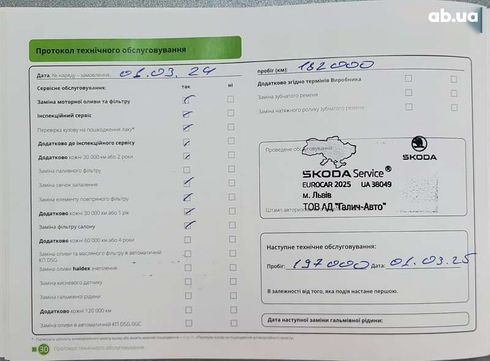 ab.ua
Протокол технічного обслуговування
Дата № наряду - замовлення: 01.03.24
пробіг (км): 182000
Сервісне обслуговування: так ні
Заміна моторної оливи та фільтру
Інспекційний сервіс
Перевірка кузову на пошкодження лаку*
Додатково до інспекційного сервісу
Додатково кожні 30 000 км або 2 роки
Заміна паливного фільтру
Заміна свічок запалення
Заміна елементу повітряного фільтру
Додатково кожні 30 000 км або 1 рік
Заміна фільтру салону
Додатково кожні 60 000 км або 4 роки
Заміна оливи та масляного фільтру в автоматичній
КП DSG
Заміна оливи haldex зчеплення
Заміна кисневого датчику
Заміна гальмівної рідини
Додатково 120 000 км
Заміна оливи в автоматичній КП
Додатково згідно термінів Виробника
Заміна зубчатого ременя
Заміна натяжного ролику зубчатого ременя
Проведене обслуговування
SKODA Service®
SKODA
EUROCAR 2025 UA 38049
м. Львів
ТОВ АД "Галич-Авто"
Штамп
Наступне технічне обслуговування:
Пробіг: 197000 Дата: 01.03.25
В залежності від того, яка подія настане першою.
Дата наступної заміни гальмівної рідини:
30 Протокол технічного обслуговування